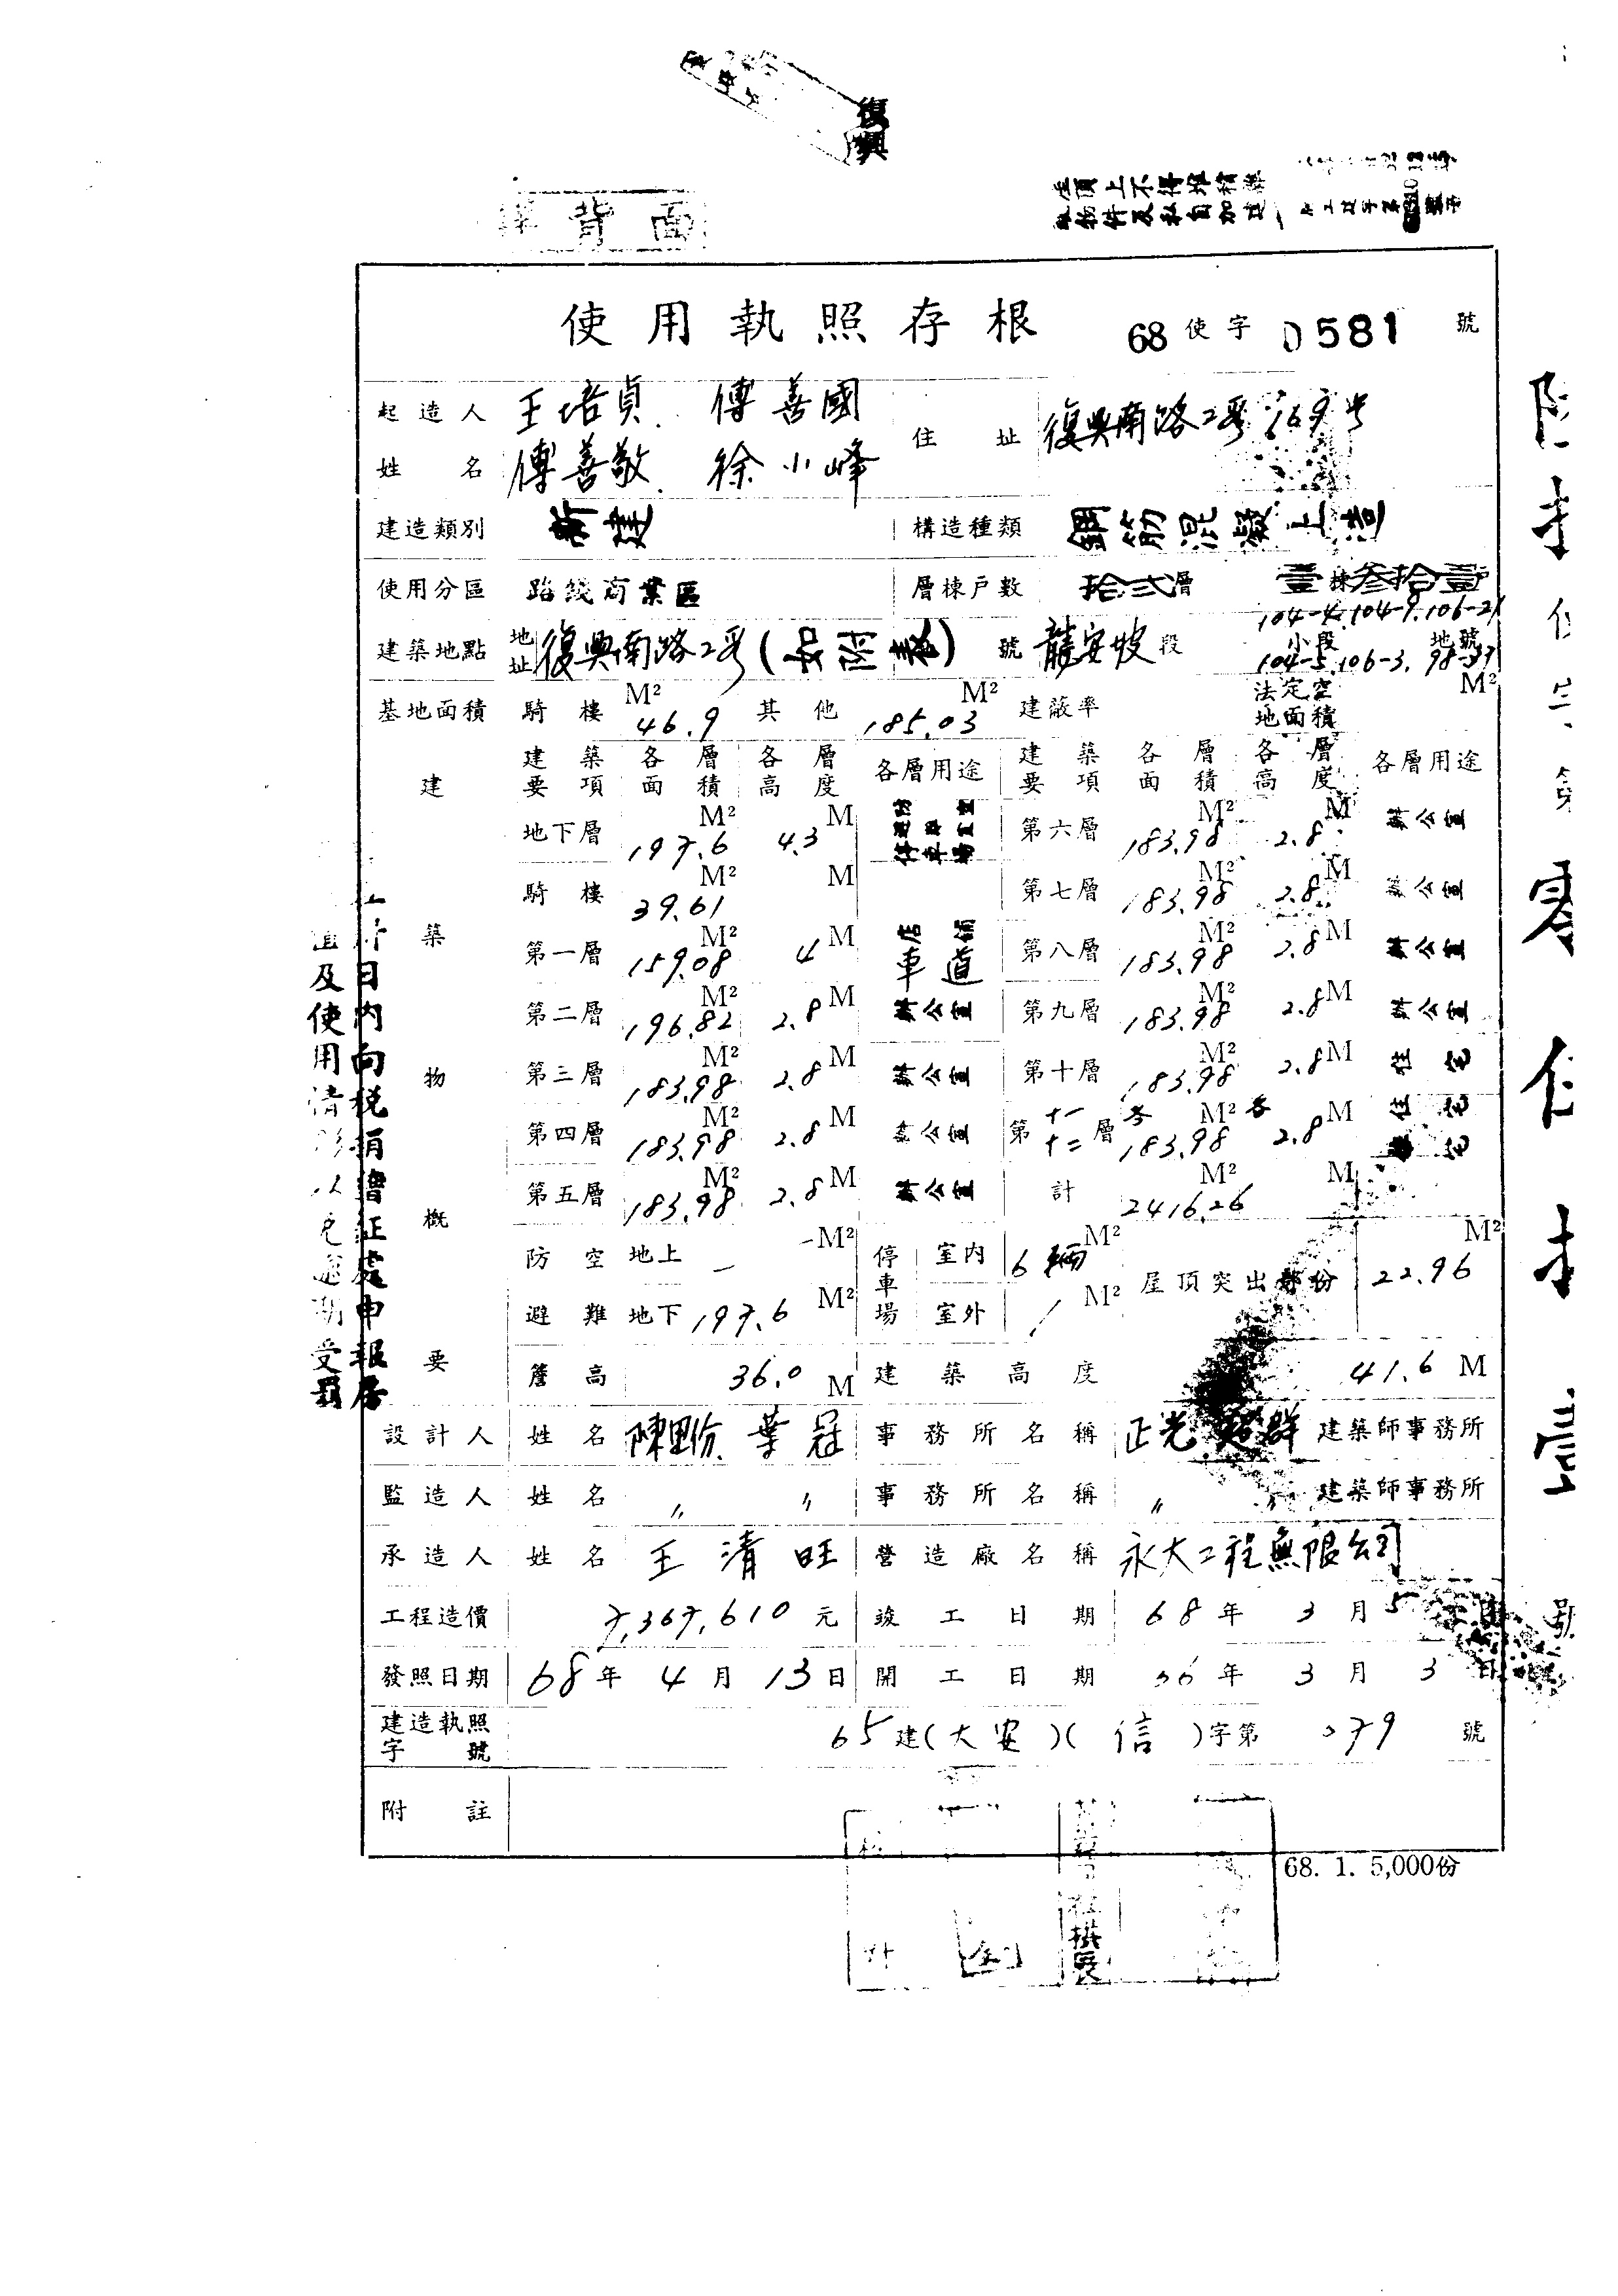 背面
屋頂上不得堆積雜
物件及私自加建
使用執照存根 68使字0581號
起造人 王培貞、傅善國
姓名 傅善敬、徐小峰
住址 復興南路2段169号
建造類別 新建 構造種類 鋼筋混凝土造
使用分區 路綫商業區 層棟戶數 拾弍層 壹棟叁拾壹戶
104-4.104-9.106-21
建築地點 地址 復興南路2段( )號 龍安坡段 小段 地號
104-5.106-3.98-37
基地面積 騎樓 46.9 M² 其他 185.03 M² 建蔽率 法定空地面積 M²
建築物概要
建築要項 各層面積 各層高度 各層用途 建築要項 各層面積 各層高度 各層用途
地下層 197.6 M² 4.3 M 防空室 停車場 第六層 183.98 M² 2.8 M 辦公室
騎樓 39.61 M² M 第七層 183.98 M² 2.8 M 辦公室
第一層 159.08 M² 4 M 店舖 車道 第八層 183.98 M² 2.8 M 辦公室
第二層 196.82 M² 2.8 M 辦公室 第九層 183.98 M² 2.8 M 辦公室
第三層 183.98 M² 2.8 M 辦公室 第十層 183.98 M² 2.8 M 住宅
第四層 183.98 M² 2.8 M 辦公室 第十一十二層 各183.98 M² 各2.8 M 住宅
第五層 183.98 M² 2.8 M 辦公室 計 2416.26 M² M
防空避難 地上 — M² 停車場 室內 6輛 M² 屋頂突出部份 22.96 M²
地下 197.6 M² 室外 / M²
簷高 36.0 M 建築高度 41.6 M
設計人 姓名 陳 葉冠 事務所名稱 正光 超群 建築師事務所
監造人 姓名 〃 〃 事務所名稱 〃 〃 建築師事務所
承造人 姓名 王清旺 營造廠名稱 永大工程無限公司
工程造價 7,367,610元 竣工日期 68年3月5日
發照日期 68年4月13日 開工日期 66年3月3日
建造執照字號 65建(大安)(信)字第079號
附註
68. 1. 5,000份
日內向稅捐稽征處申報房
及使用情形以免逾期受罰